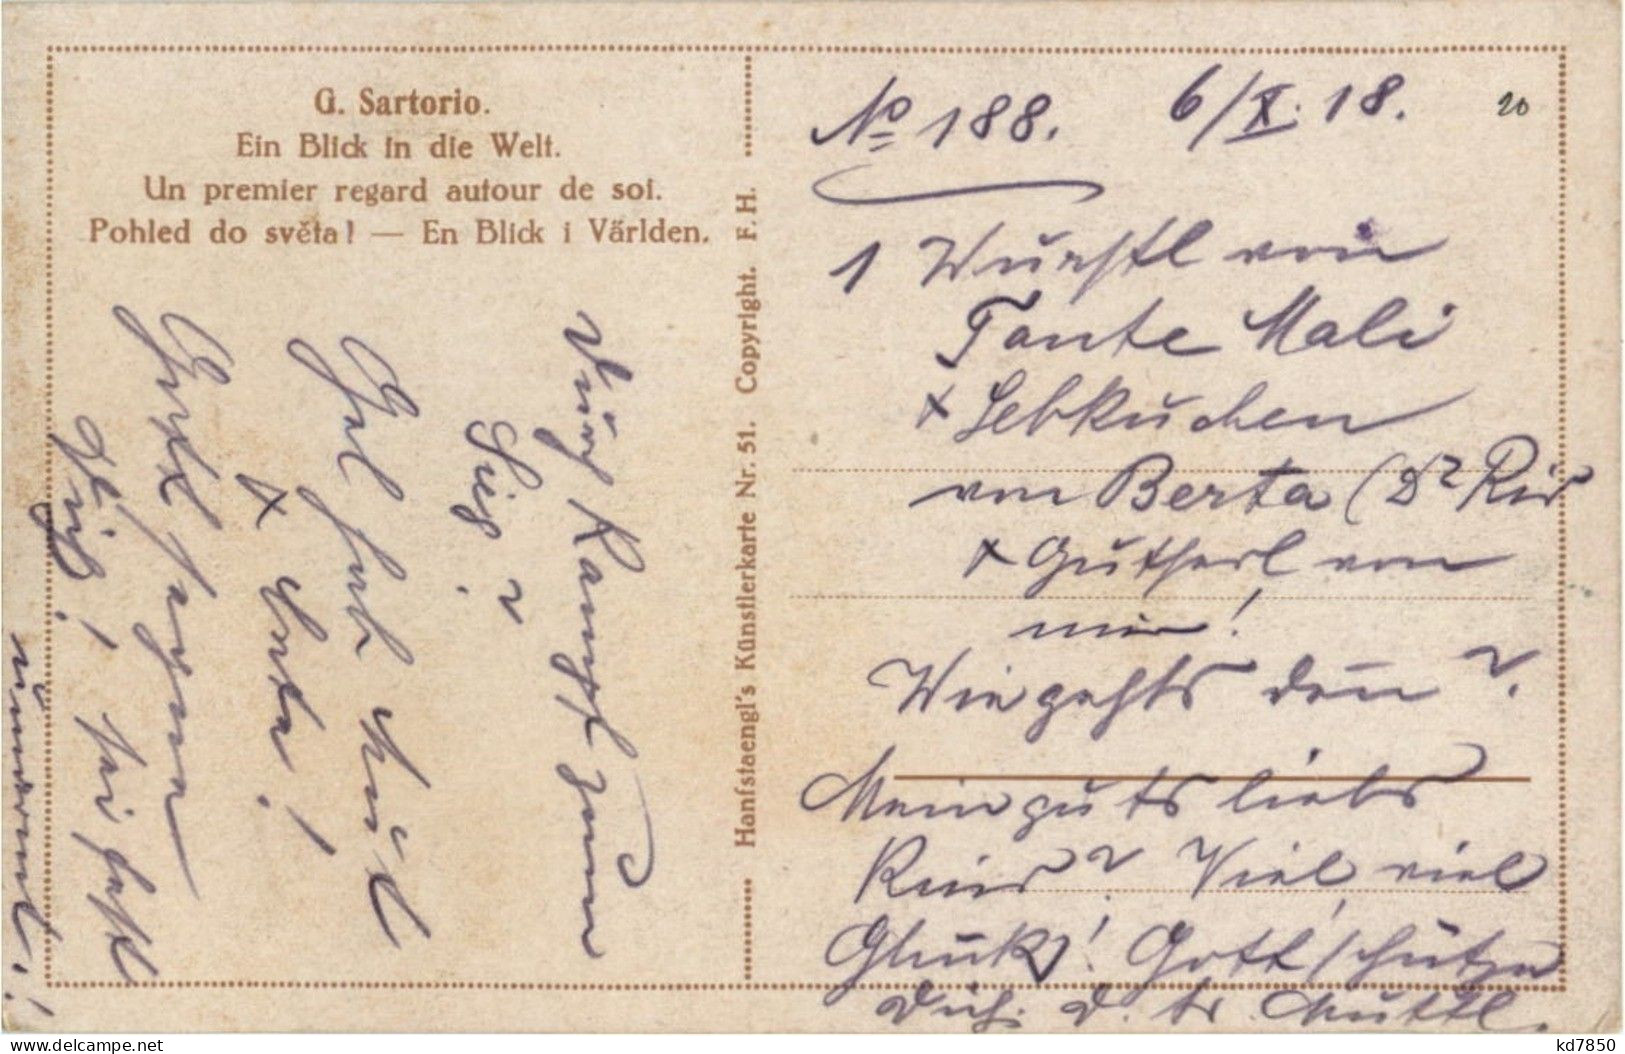 G. Sartorio.
Ein Blick in die Welt.
Un premier regard autour de soi.
Pohled do světa! — En Blick i Världen.
Hanfstaengl's Künstlerkarte Nr. 51. Copyright. F. H.
No 188. 6/X. 18. 20
1 Wurstl von
Tante Mali
+ Lebkuchen
von Berta (Dr
+ Gutserl von
mir!
Wie gehts denn?
Mein guts liebs
Viel, viel
Glück! Gott schütze
Dich. D. tr. Muttl.
Durch Kampf zum
Sieg?
+
Gott segne
Dich! sei fest
umarmt!
kd7850